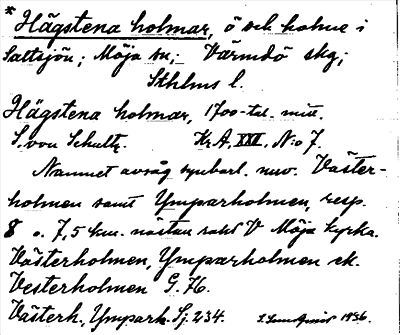 * Hägstena holmar, ö och holme i
Saltsjön; Möja sn; Värmdö skg;
Sthlms l.
Hägstena holmar, 1700-tal. mitt.
S. von Schultz. Kr.A. XXI, N:o 7.
Namnet avsåg synbarl. nuv. Väster-
holmen samt Ymparholmen, resp.
8 o. 7,5 km. nästan rakt V Möja kyrka.
Västerholmen, Ymparholmen ek.
Vesterholmen G. K.
Västerh., Ympark. Sj. 234. 1936.